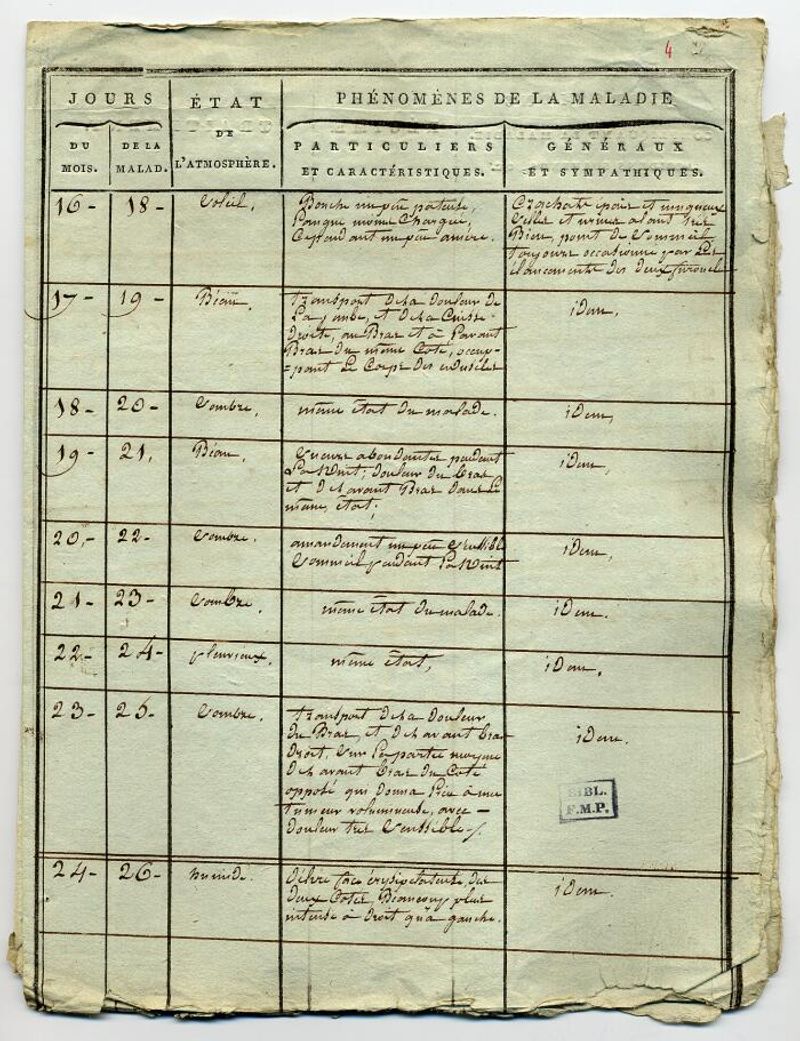 4
JOURS
ÉTAT
DE
L'ATMOSPHÈRE.
PHÉNOMÈNES DE LA MALADIE
DU
MOIS.
DE LA
MALAD.
PARTICULIERS
ET CARACTÉRISTIQUES.
GÉNÉRAUX
ET SYMPATHIQUES.
16- 18- Soleil. Bouche un peu pateuse,
Langue moins Chargée,
Cependant un peu amere.
Crachats épais et muqueux
Selles et urines alant tres
Bien, point de Sommeil
toujours occasionné par Les
élancements des deux
17- 19- Béau. transport de La douleur de
La jambe, et de La Cuisse
droite, au Bras et à Lavant
Bras du même Coté, occup-
=pant Le Corps des muscles
idem,
18- 20- Sombre, même état du malade. idem,
19- 21, Béau, Sueurs abondantes pendant
La Nuit; douleur du bras
et de Lavant Bras dans Le
même état;
idem,
20,- 22- Sombre. amandement un peu Senssible
Sommeil pendant La Nuit
idem,
21- 23- Sombre. même état du malade. idem.
22- 24- pleuvieux. même état, idem.
23- 25- Sombre. transport de La douleur
du Bras, et de Lavant bras
droit, Sur La partie moyene
de Lavant bras du Coté
opposé qui donna Lieu à une
tumeur volumineuse, avec -
douleur tres Senssible./.
idem.
BIBL.
F.M.P.
24- 26- humide. fiévre érysipelateuse, des
deux Cotés, Beaucoup plus
intense à droit qu'a gauche.
idem.